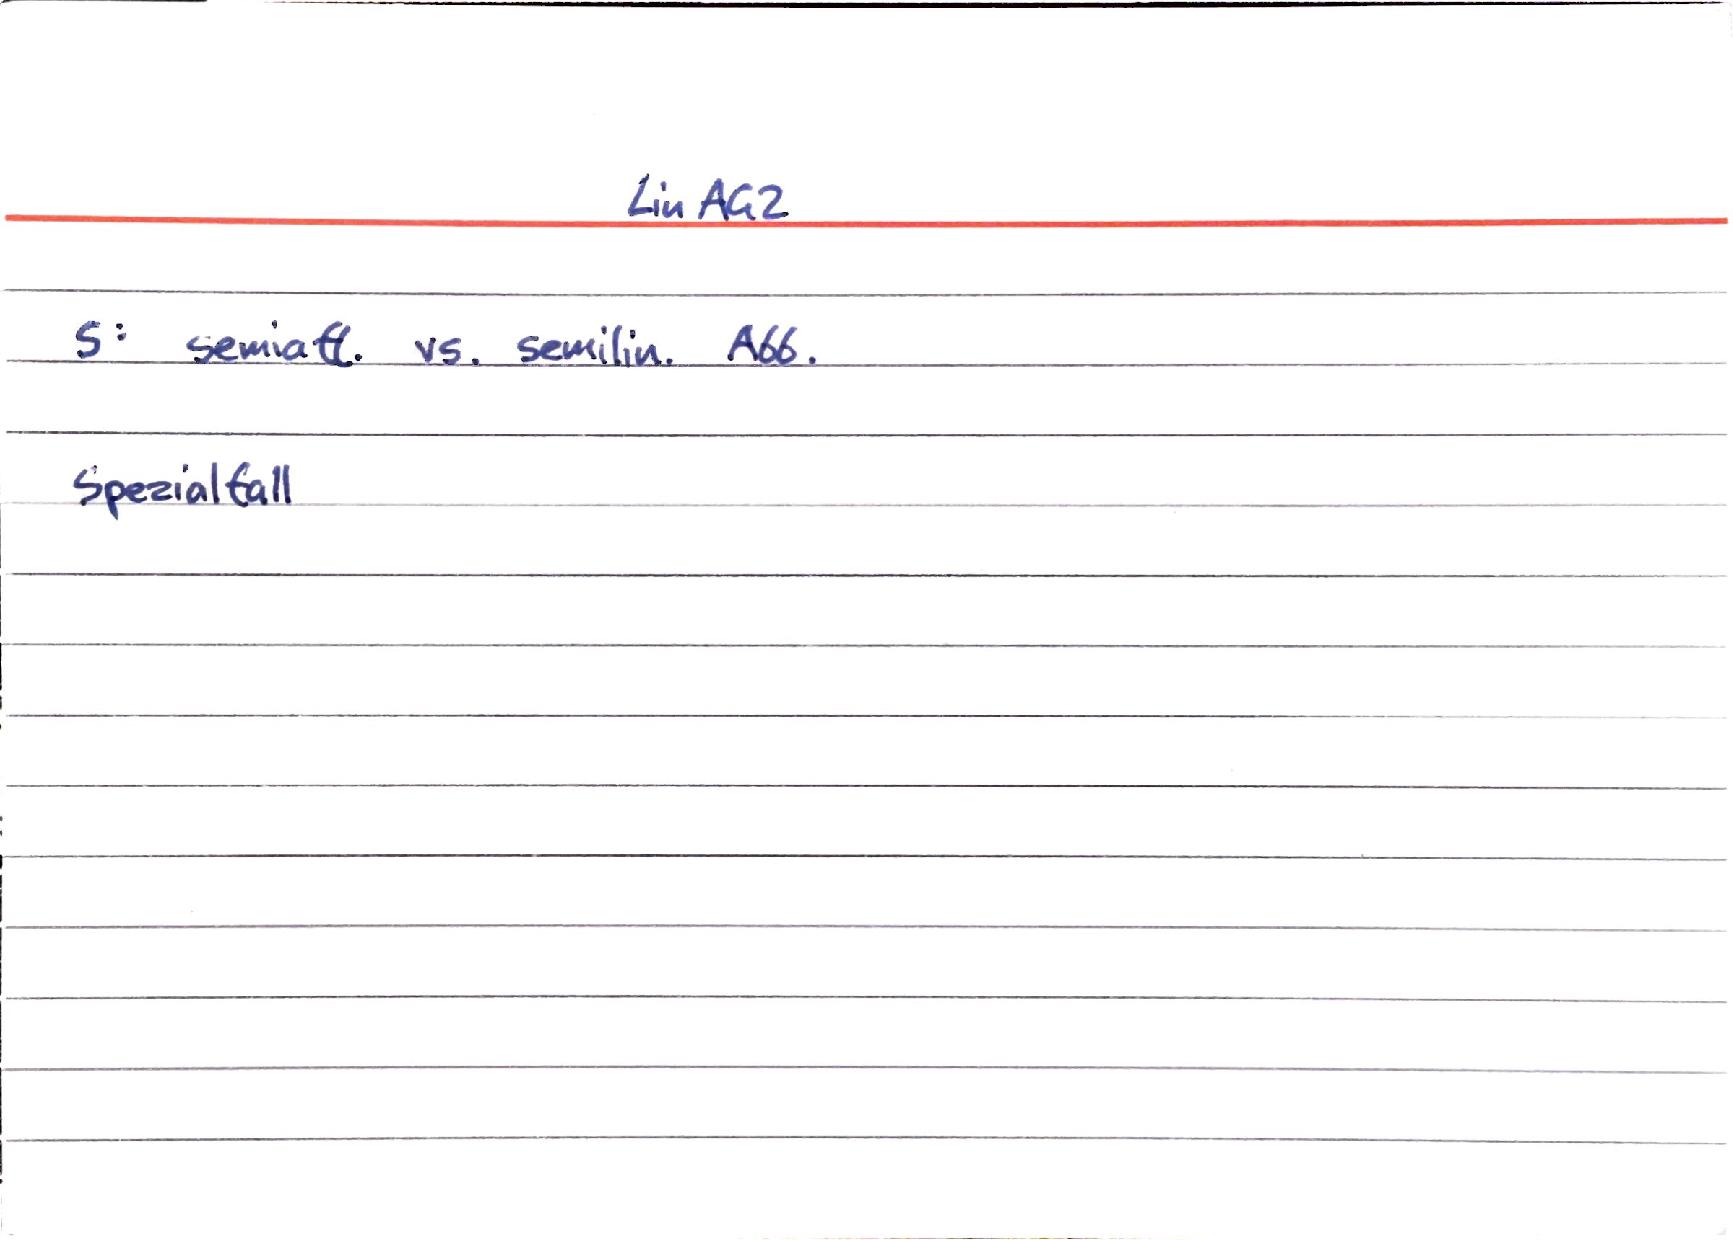 Lin AG2
S: semiaff. vs. semilin. Abb.
Spezialfall